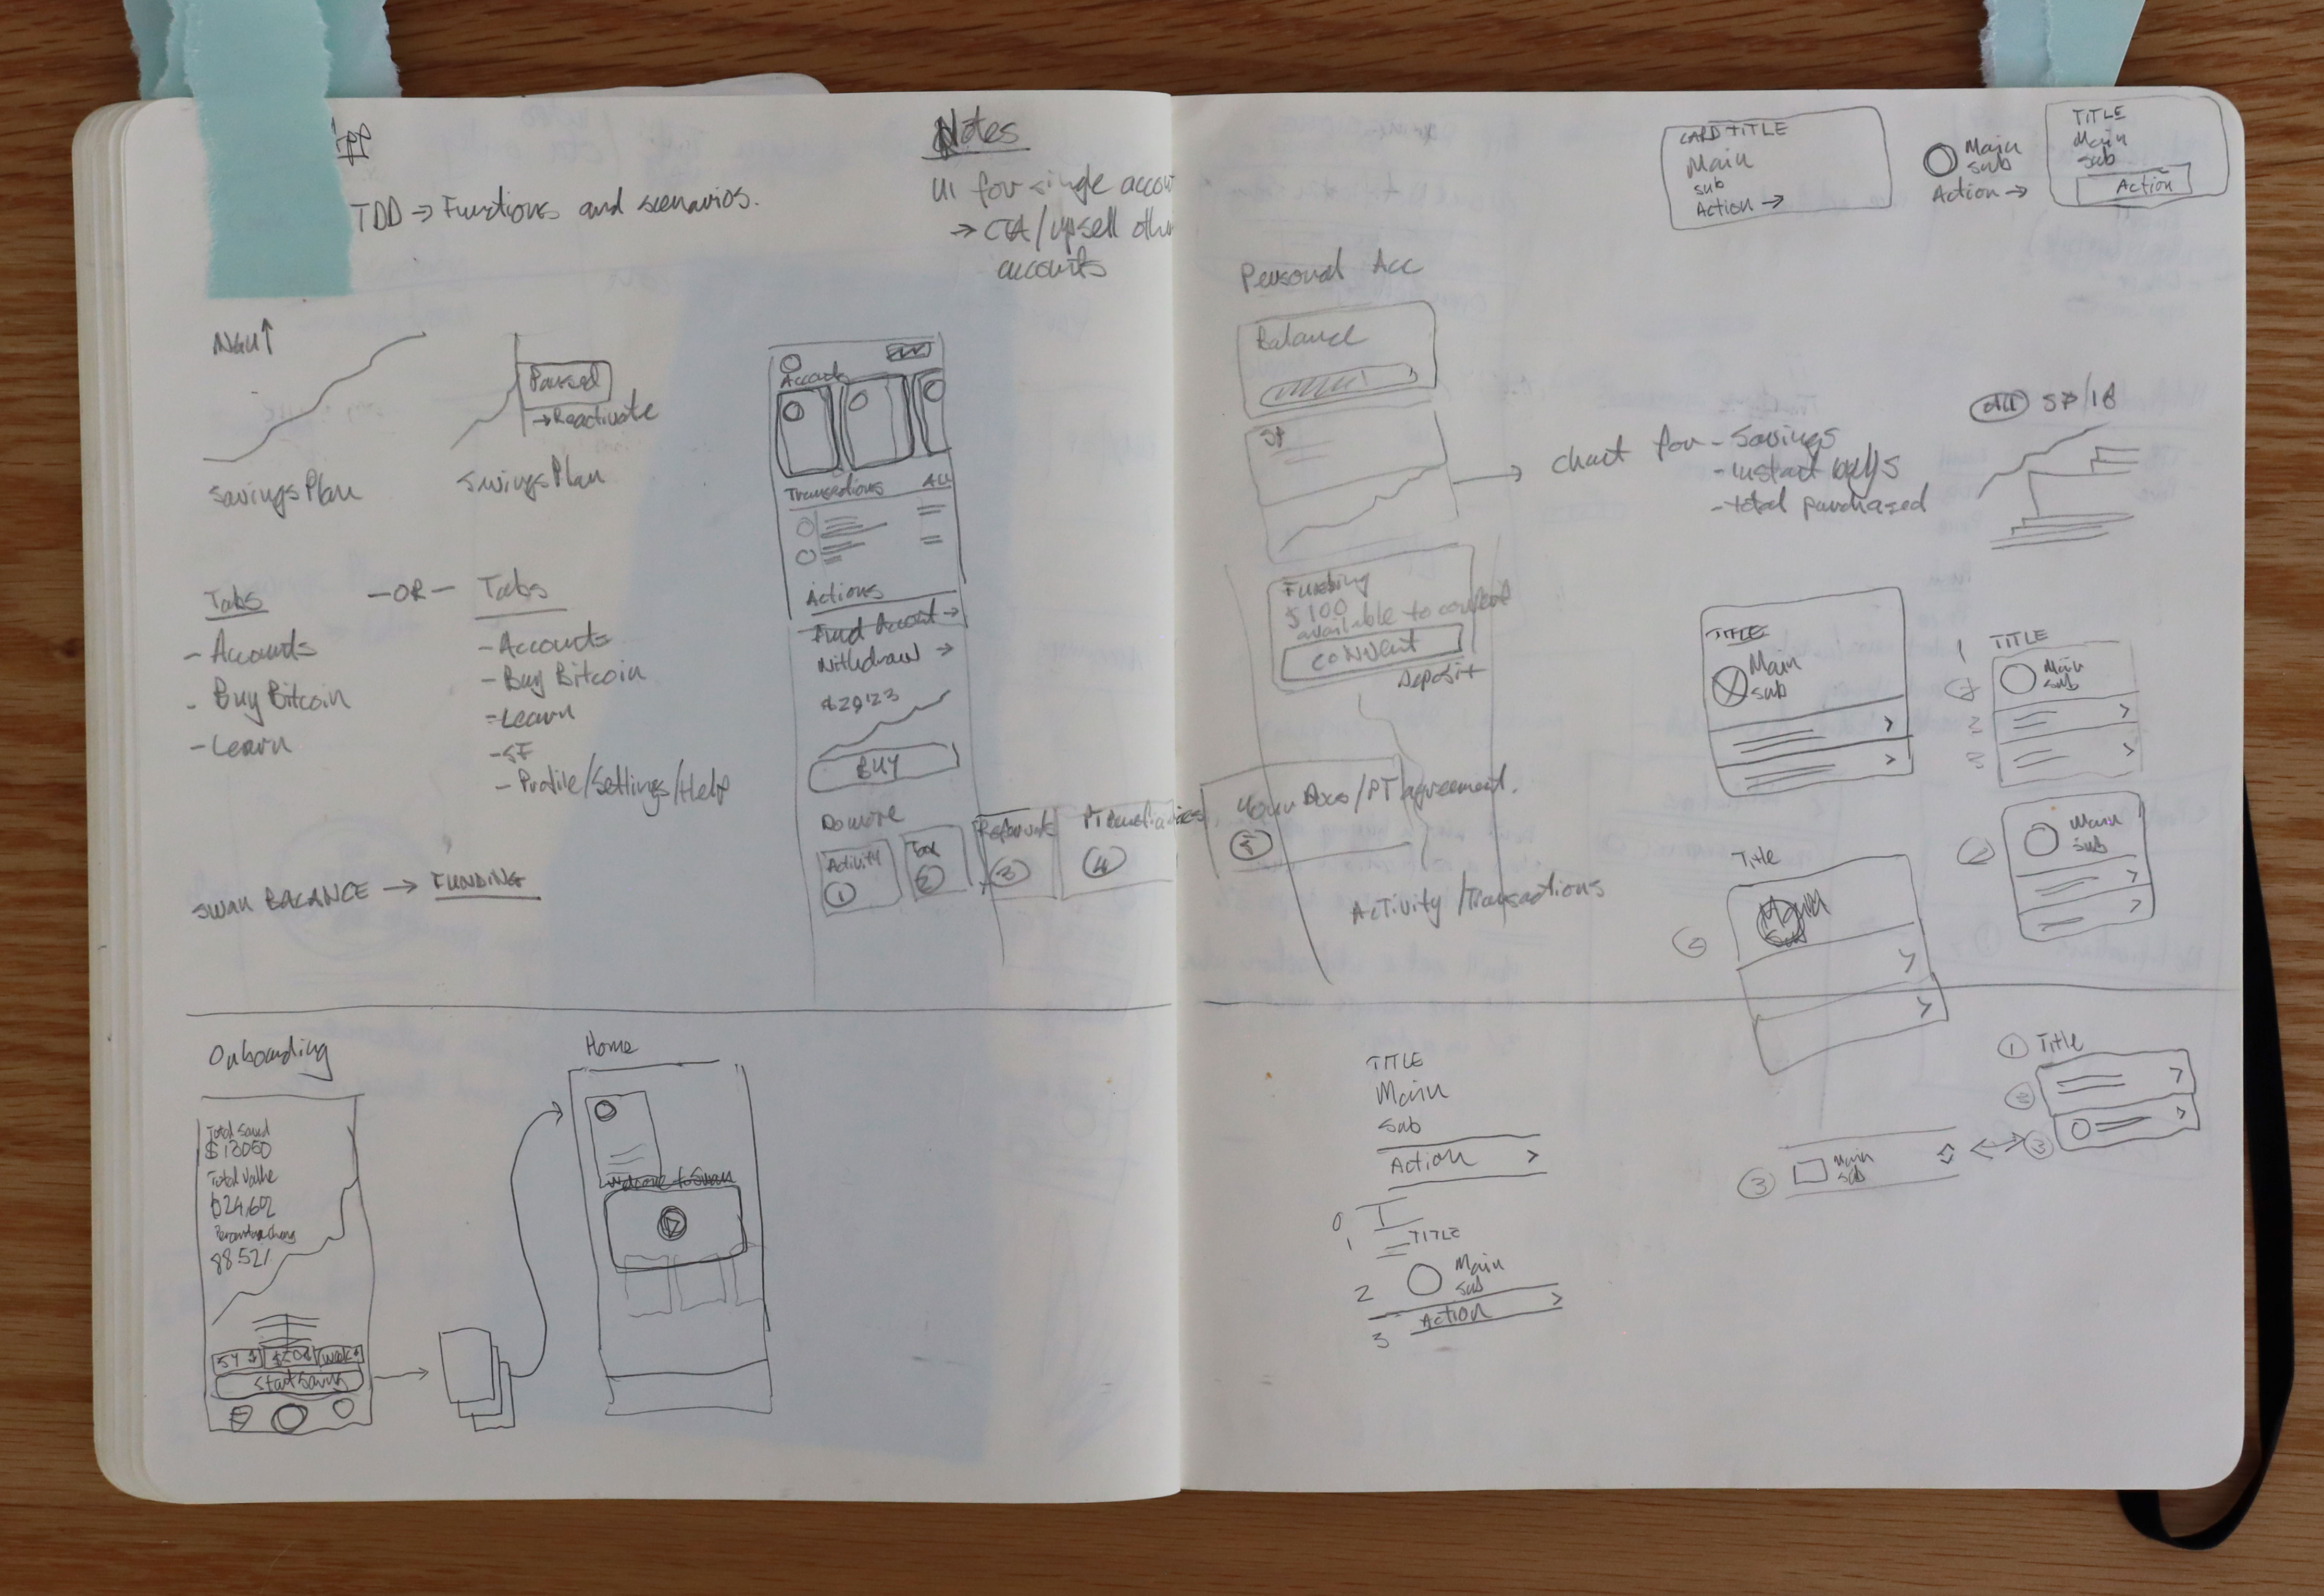 APP
TDD → Functions and scenarios.
Notes
UI for single accou
→ CTA/upsell othe
accounts
NGU↑
Savings Plan
Paused
→Reactivate
Savings Plan
Tabs
- Accounts
- Buy Bitcoin
- Learn
-OR-
Tabs
- Accounts
- Buy Bitcoin
- Learn
- SF
- Profile/Settings/Help
SWAN BALANCE → FUNDING
Accounts
Transactions ALL
Actions
Fund Account →
Withdraw →
$29123
BUY
Do more
Activity
1
Tax
2
Referrals
3
4
Your Docs/PT agreement.
5
Onboarding
Total Saved
$13050
Total Value
$24,602
88.52%
5Y
$50
week
Start Saving
Home
Welcome to Swan
Personal Acc
Balance
SP
→ Chart for - Savings
- instant buys
- total purchased
Funding
$100
available to convert
CONVERT
Deposit
Activity/Transactions
CARD TITLE
Main
sub
Action →
Main
sub
Action →
TITLE
Main
sub
Action
SP/IB
TITLE
Main
sub
1 TITLE
Main
sub
2
3
Main
sub
2
Title
Main
Sub
2
TITLE
Main
Sub
Action >
0
1 TITLE
2 Main
sub
3 Action >
1 Title
2
3
3 Main
sub